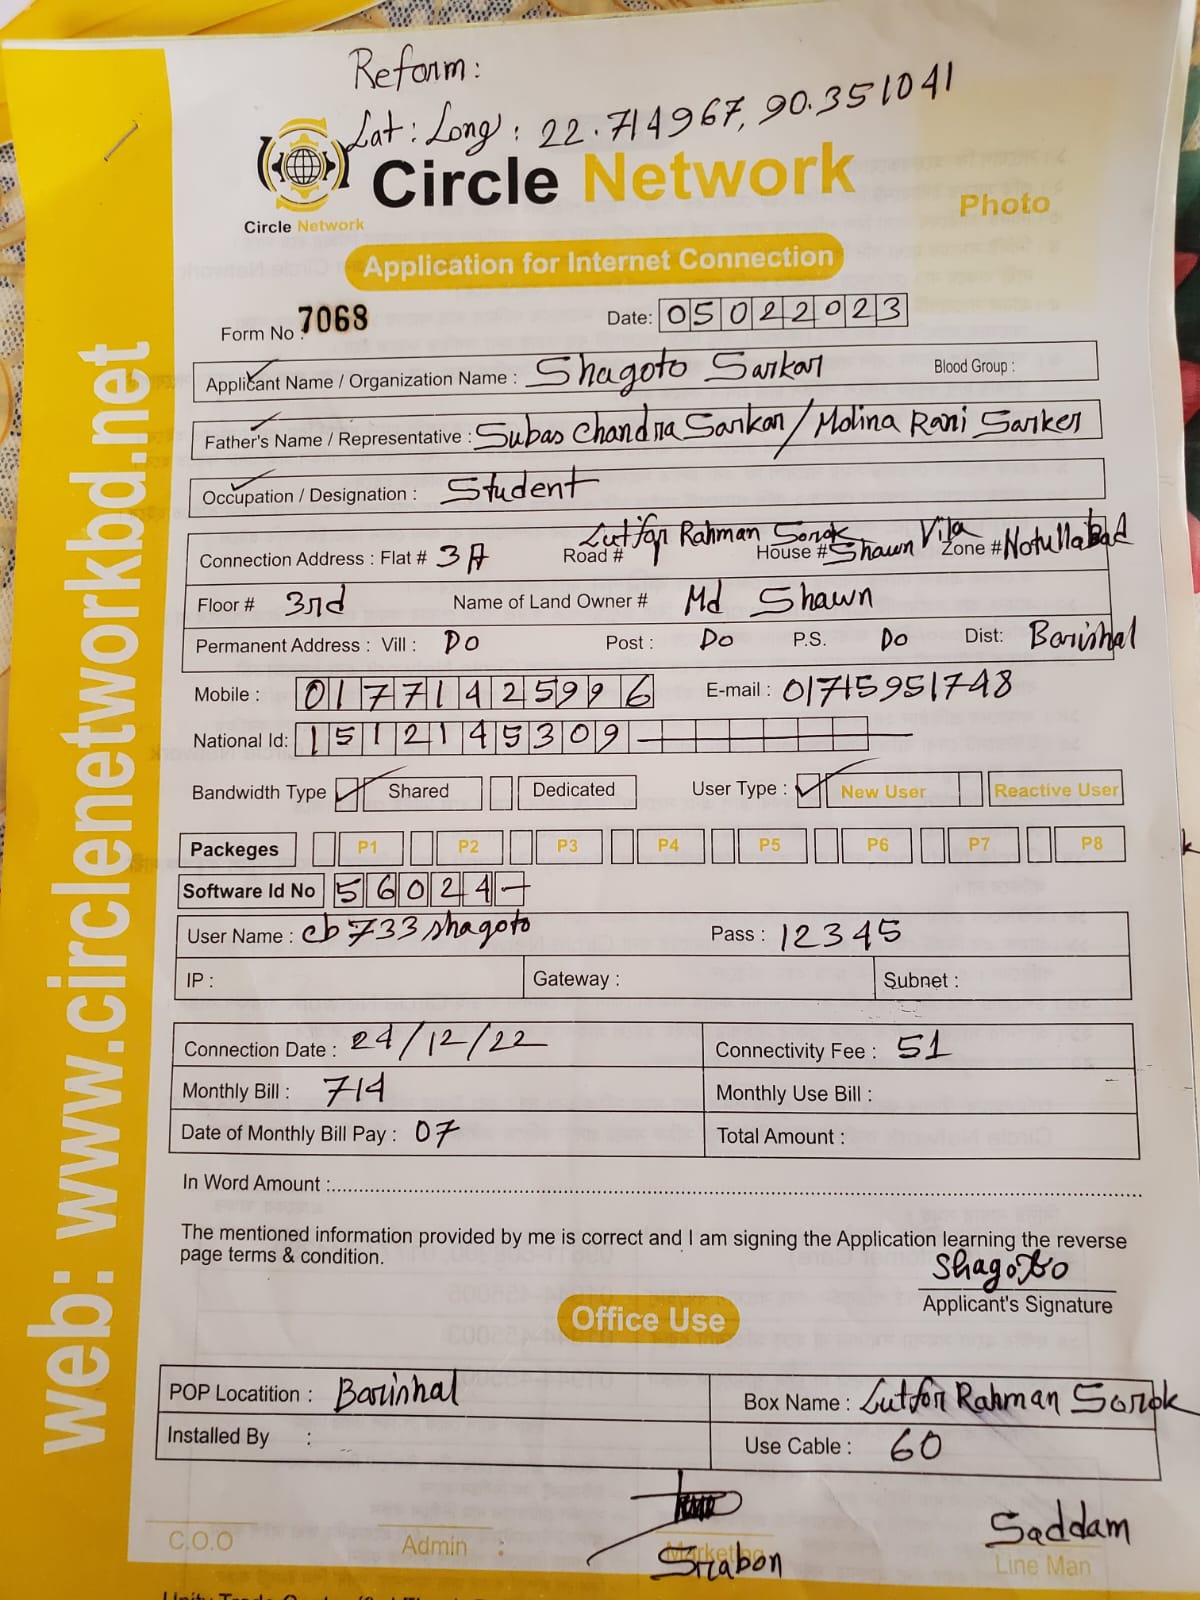 Reform:
Lat: Long: 22.714967, 90.351041
Circle Network
Circle Network
Photo
Application for Internet Connection
Form No : 7068 Date: 05022023
Applicant Name / Organization Name : Shagoto Sarkar Blood Group :
Father's Name / Representative : Subas Chandra Sarkar / Molina Rani Sarker
Occupation / Designation : Student
Connection Address : Flat # 3A Road # Lutfor Rahman Sorok House # Shawn Vila Zone # Notullabad
Floor # 3rd Name of Land Owner # Md Shawn
Permanent Address : Vill : Do Post : Do P.S. Do Dist: Barishal
Mobile : 01771425996 E-mail : 01715951748
National Id: 1512145309
Bandwidth Type Shared Dedicated User Type : New User Reactive User
Packeges P1 P2 P3 P4 P5 P6 P7 P8
Software Id No 56024
User Name : cb733shagoto Pass : 12345
IP : Gateway : Subnet :
Connection Date : 24/12/22 Connectivity Fee : 51
Monthly Bill : 714 Monthly Use Bill :
Date of Monthly Bill Pay : 07 Total Amount :
In Word Amount :
The mentioned information provided by me is correct and I am signing the Application learning the reverse
page terms & condition.
Shagoto
Applicant's Signature
Office Use
POP Locatition : Barishal Box Name : Lutfor Rahman Sorok
Installed By : Use Cable : 60
Srabon Saddam
C.O.O Admin : Marketing Line Man
web: www.circlenetworkbd.net